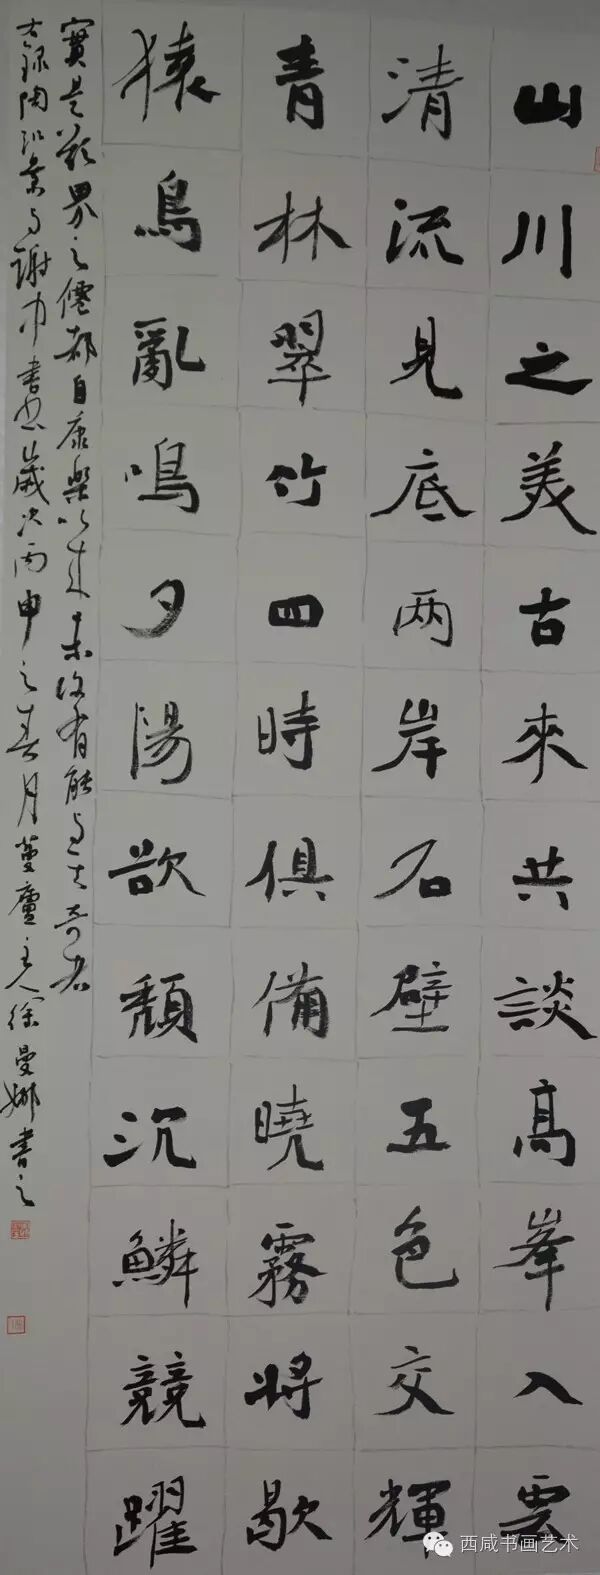 山川之美古來共談高峯入雲
清流見底两岸石壁五色交輝
青林翠竹四時俱備曉霧將歇
猿鳥亂鳴夕陽欲頹沉鱗競躍
實是欲界之僊都自康樂以来未復有能與其奇者
右録陶弘景與謝中書書歲次丙申之春月蔓廬主人徐曼娜書之
西咸书画艺术